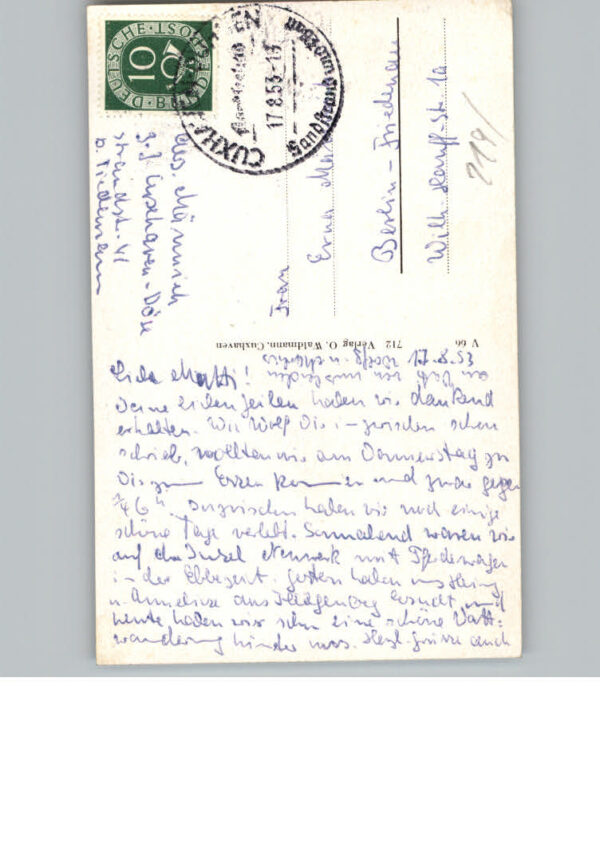 DEUTSCHE BUNDESPOST
10
CUXHAVEN
17.8.53-15
Sandstrand
Abs. Männrich
z.Z. Cuxhaven-Döse
Strandstr. 41
b. Tiedemann
Frau
Erna
Berlin-Friedenau
Wilh. Hauff-St. 1a
219/
V 66 712 Verlag O. Waldmann, Cuxhaven
17.8.53
Liebe Mutti!
Deine lieben Zeilen haben wir dankend
erhalten. Wie Wolf Dir inzwischen schon
schrieb, wollten wir am Donnerstag zu
Dir zum Essen kommen und zwar gegen
Inzwischen haben wir noch einige
schöne Tage verlebt. Sonnabend waren wir
auf der Insel Neuwerk mit Pferdewagen
in der Ebbezeit. Gestern haben uns
u. Anneliese aus besucht, und
heute haben wir schon eine schöne Watt-
wanderung hinter uns. Herzl. Grüsse auch
an Vati von uns beiden
Wolfg. u.